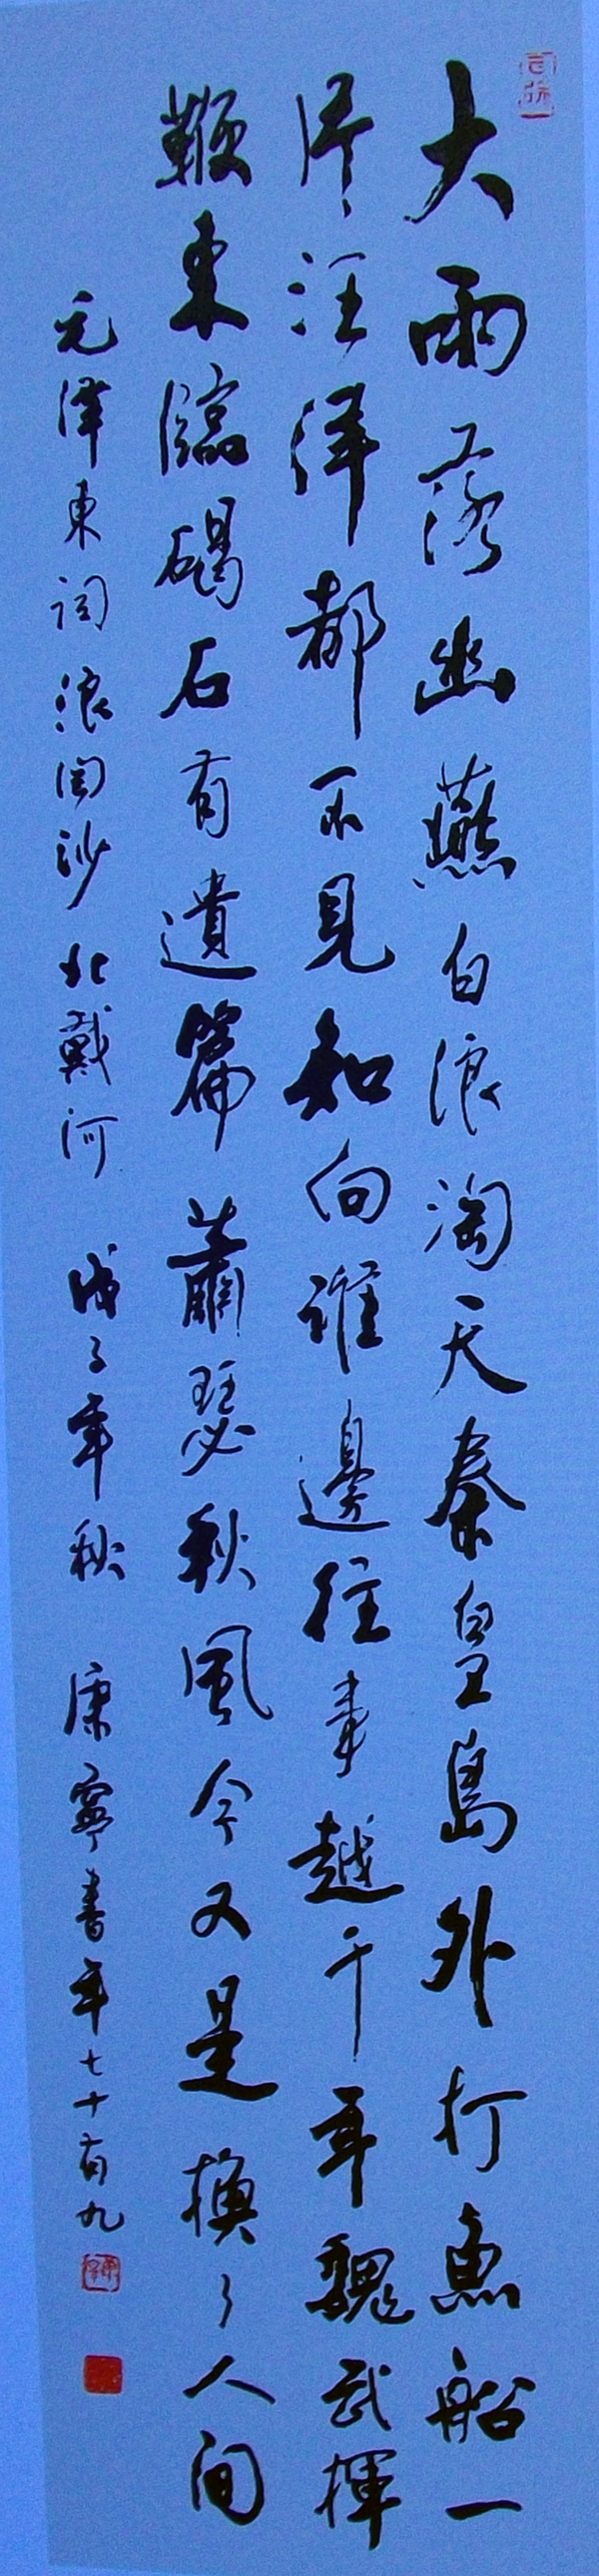 大雨落幽燕白浪淘天秦皇島外打魚船一
片汪洋都不見知向誰邊往事越千年魏武揮
鞭東臨碣石有遺篇蕭瑟秋風今又是換了人間
毛澤東詞浪淘沙北戴河 戊子年秋 康寧書年七十有九